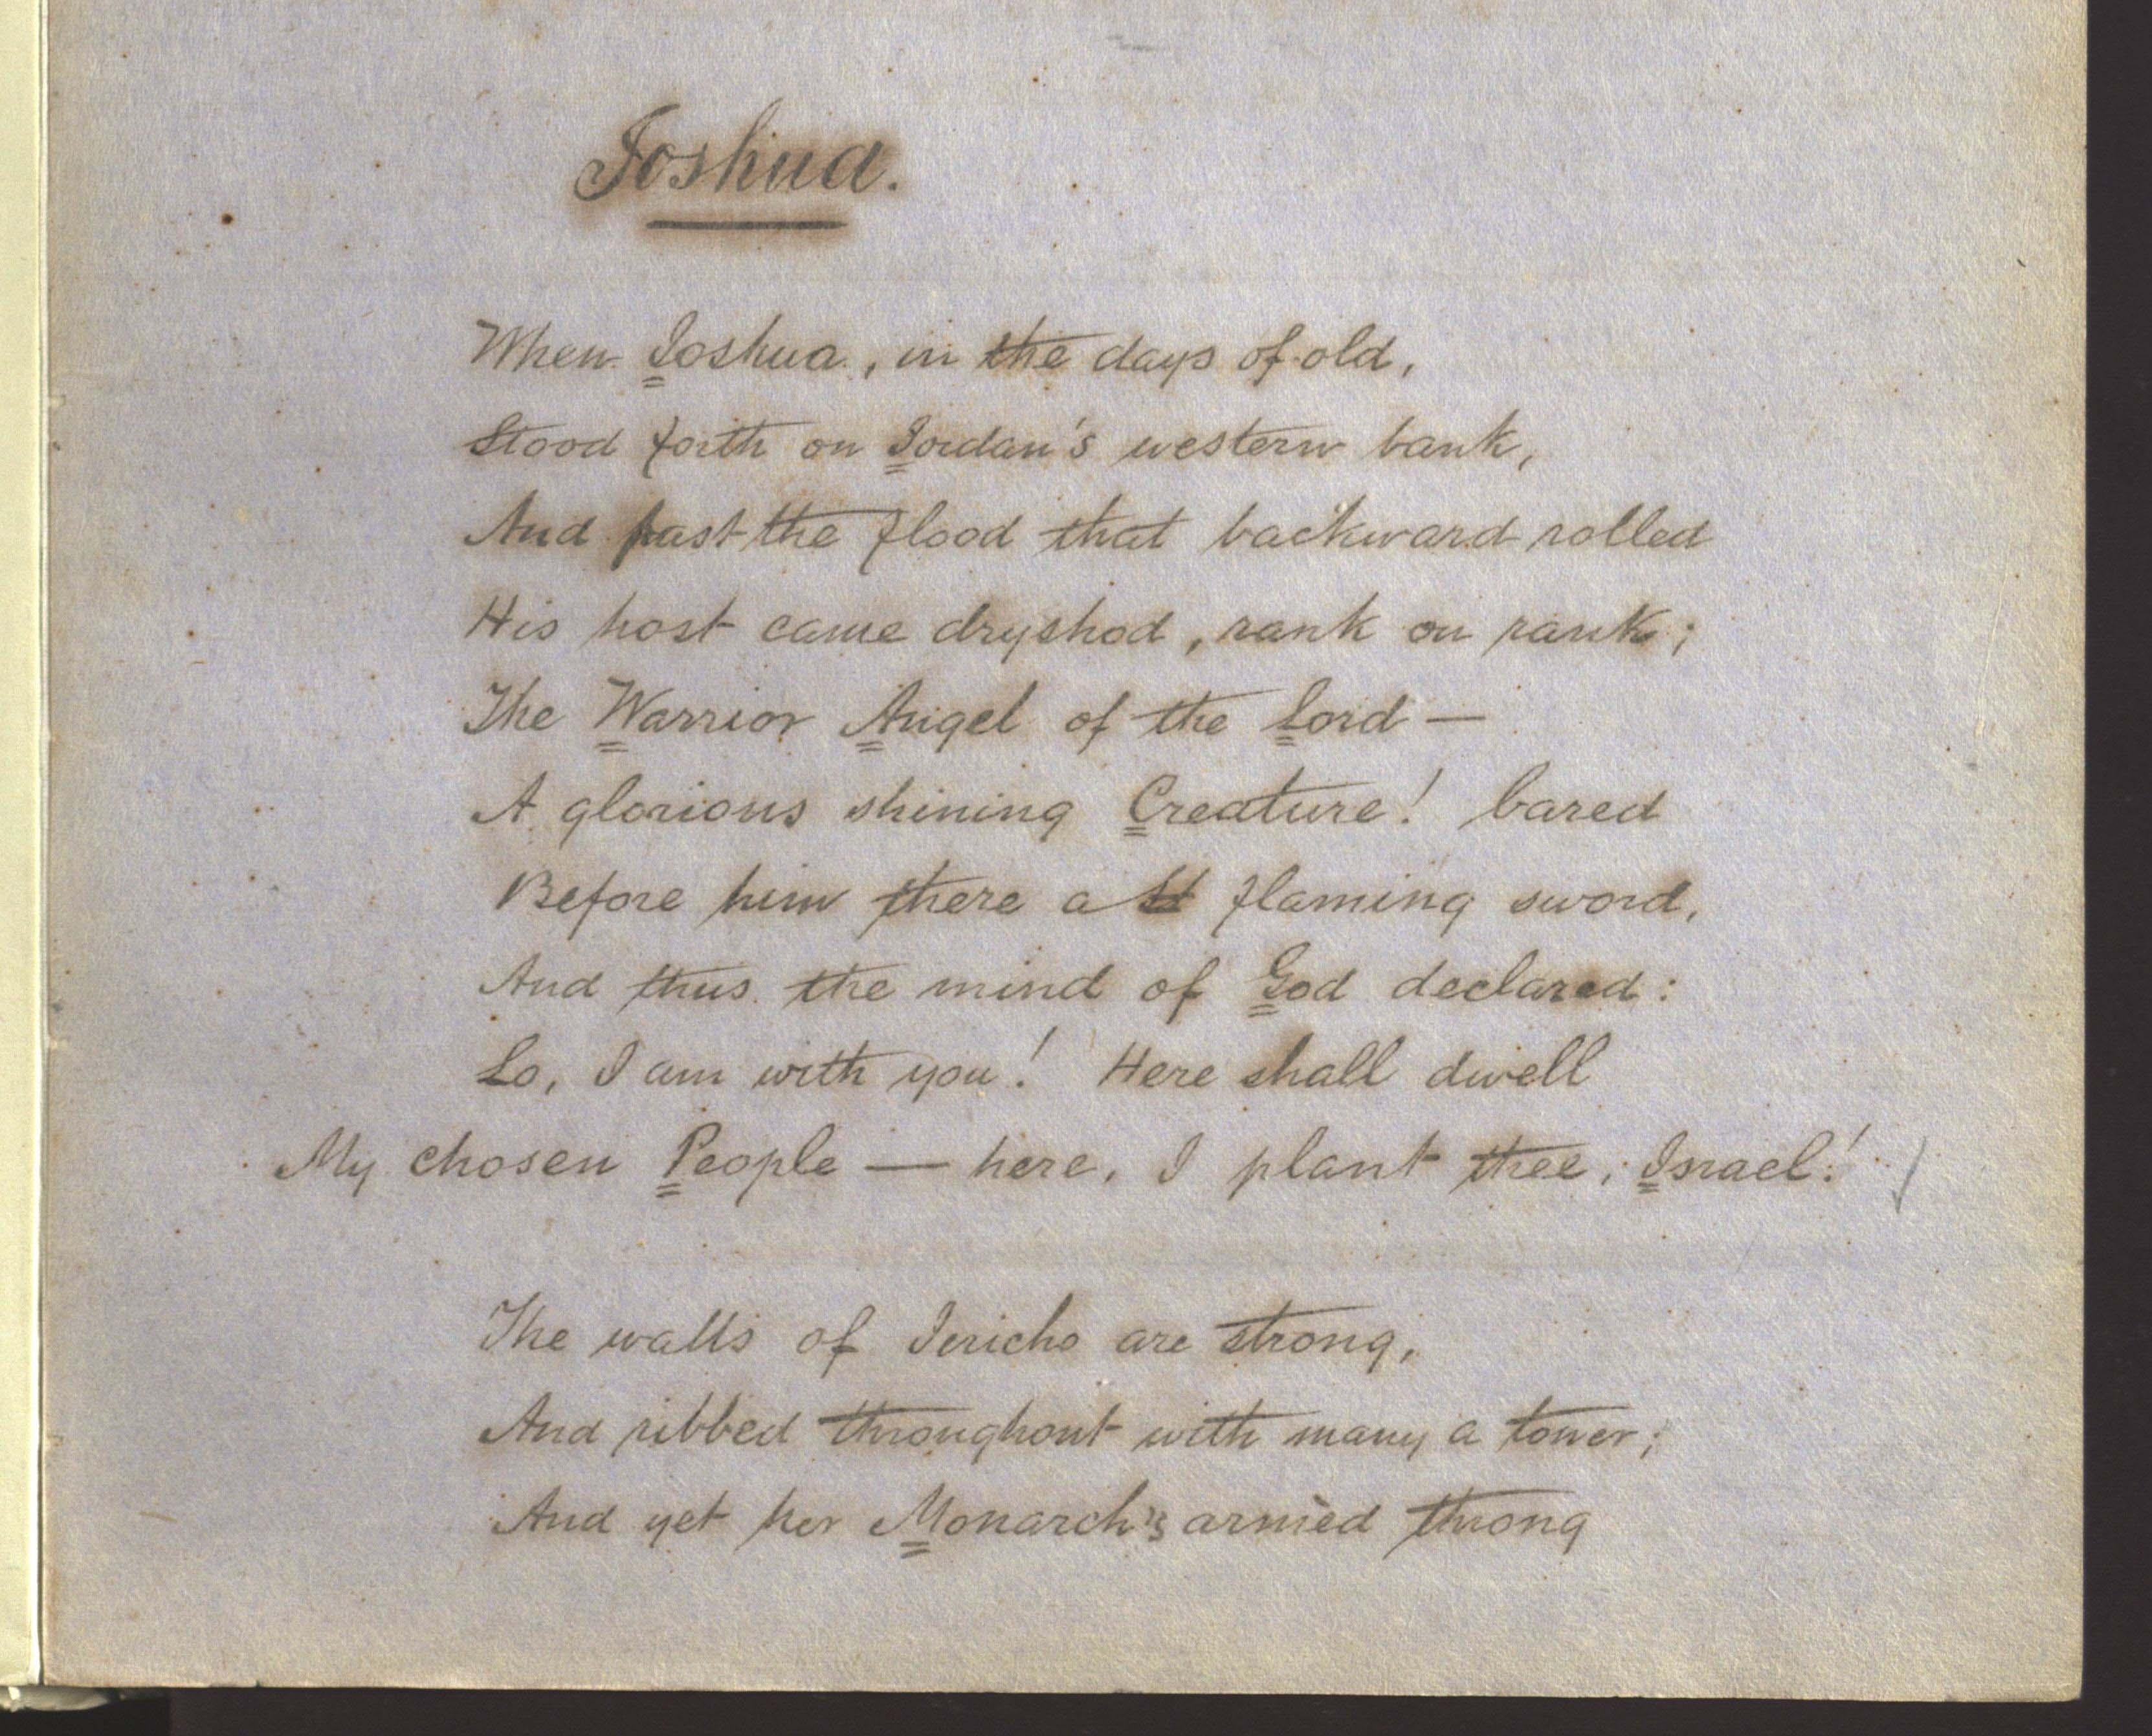 Joshua.
When Joshua, in the days of old,
Stood forth on Jordan's western bank,
And past the flood that backward rolled
His host came dryshod, rank on rank;
The Warrior Angel of the Lord —
A glorious shining Creature! bared
Before him there a flaming sword,
And thus the mind of God declared:
Lo, I am with you! Here shall dwell
My chosen People — here, I plant thee, Israel!
The walls of Jericho are strong,
And ribbed throughout with many a tower;
And yet her Monarch's armèd throng